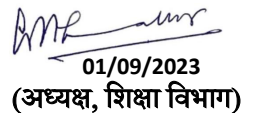 01/09/2023
(अध्यक्ष, शिक्षा विभाग)